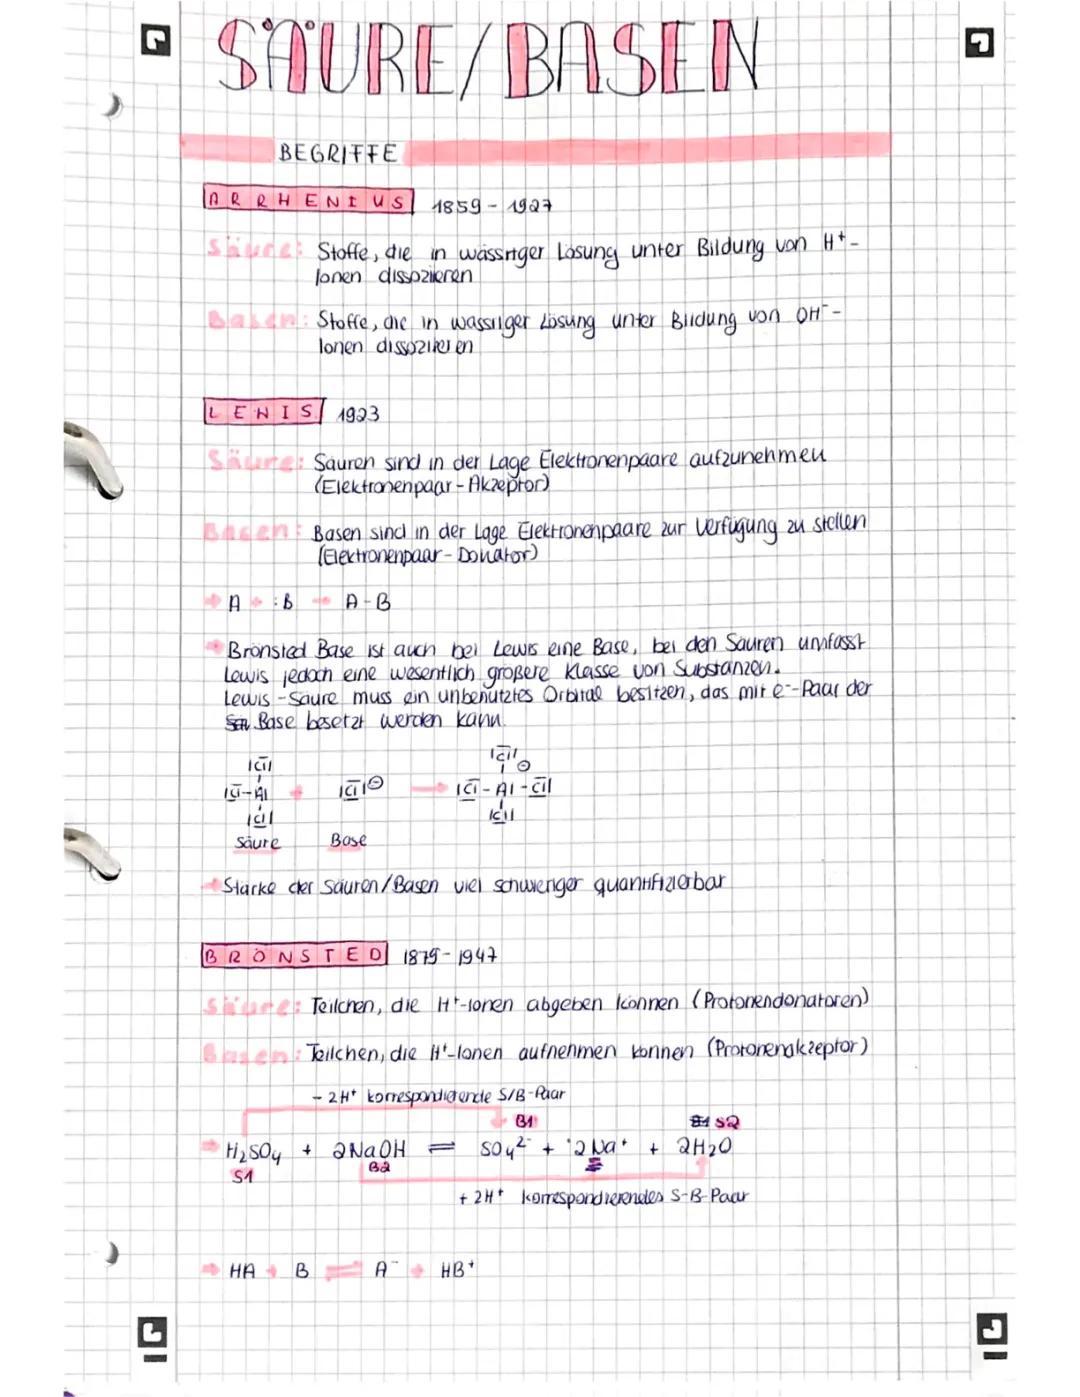 SÄURE/BASEN
BEGRIFFE
ARRHENIUS 1859 - 1927
Säure: Stoffe, die in wässriger Lösung unter Bildung von H⁺-
Ionen dissoziieren
Basen: Stoffe, die in wässriger Lösung unter Bildung von OH⁻-
Ionen dissoziieren
LEWIS 1923
Säure: Säuren sind in der Lage Elektronenpaare aufzunehmen
(Elektronenpaar-Akzeptor)
Basen: Basen sind in der Lage Elektronenpaare zur Verfügung zu stellen
(Elektronenpaar-Donator)
→ A + :B → A-B
→ Brönsted Base ist auch bei Lewis eine Base, bei den Säuren umfasst
Lewis jedoch eine wesentlich größere Klasse von Substanzen.
Lewis-Säure muss ein unbenutztes Orbital besitzen, das mit e⁻-Paar der
Base besetzt werden kann.
|C̅l| |C̅l| ⊖
|C̅l-Al + |C̅l|⊖ → |C̅l-Al-C̅l|
|C̲l| |C̲l|
Säure Base
→ Stärke der Säuren/Basen viel schwieriger quantifizierbar
BRÖNSTED 1879-1947
Säure: Teilchen, die H⁺-Ionen abgeben können (Protonendonatoren)
Basen: Teilchen, die H⁺-Ionen aufnehmen können (Protonenakzeptor)
- 2H⁺ korrespondierende S/B-Paar
B1 S2
→ H₂SO₄ + 2NaOH ⇌ SO₄²⁻ + 2Na⁺ + 2H₂O
S1 B2
+ 2H⁺ korrespondierendes S-B-Paar
→ HA + B ⇌ A⁻ + HB⁺